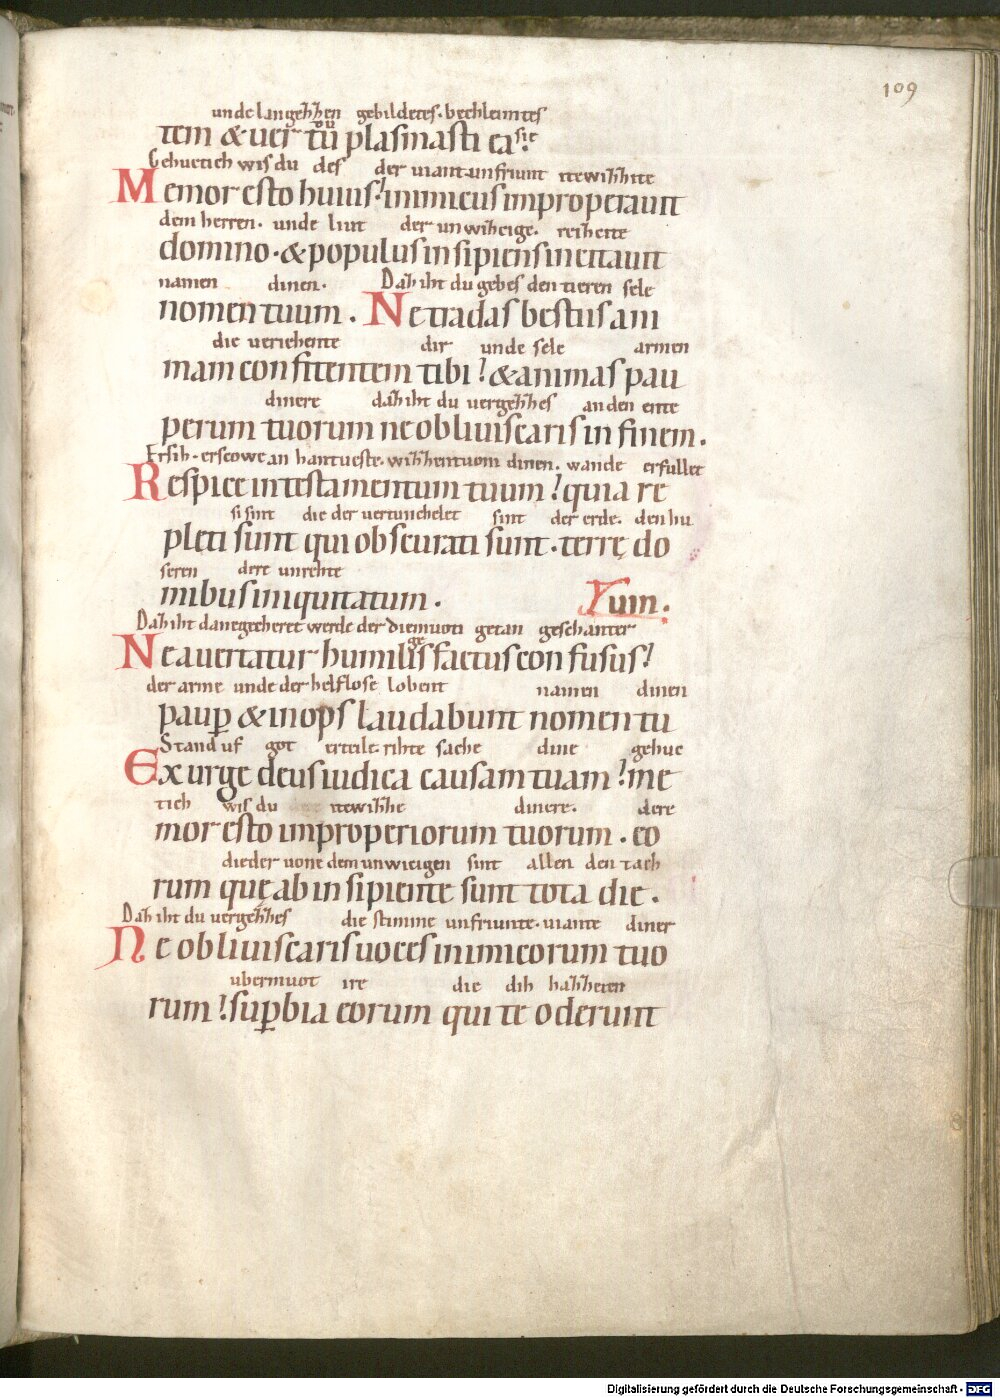 109
unde langeҕҕen gebildetes. bechleimtes
tem & uer tu plasmasti ea. sie
Gehuctich wis du des der uiant unfriunt itewiҕҕite
Memor esto huius? inimicus improperauit
dem herren. unde liut der unwiҕeige. reiҕette
domino. & populus insipiens incitauit
namen dinen. Daҕ iht du gebes den tieren sele
nomen tuum. Ne tradas bestiis ani
die ueriehente dir unde sele armen
mam confitentem tibi? & animas pau
dinere daҕ iht du vergeҕҕes an den ente
perum tuorum ne obliuiscaris in finem.
Ersih. erscowe an hantueste. wiҕҕentuom dinen. wande erfullet
Respice in testamentum tuum? quia re
si sint die der uertunchelet sint der erde. den hu
pleti sunt qui obscurati sunt. terrę do
seren dere unrehte
mibus iniquitatum. Yum.
Daҕ iht danegecheret werde der diemuoti getan geschanter
Ne auertatur humilis factus confusus?
der arme unde der helflose lobent namen dinen
paup & inops laudabunt nomen tu
Stand uf got erteile. rihte sache dine gehuc
Exurge deus iudica causam tuam? me
tich wis du itewiҕҕe dinere. dere
mor esto improperiorum tuorum. eo
die der uone dem unwiceigen sint allen den tach
rum quę ab insipiente sunt tota die.
Daҕ iht du vergeҕҕes die stimme unfriunte. uiante diner
Ne obliuiscaris uoces inimicorum tuo
ubermuot ire die dih haҕҕeten
rum? supbia eorum qui te oderunt
Digitalisierung gefördert durch die Deutsche Forschungsgemeinschaft - DFG